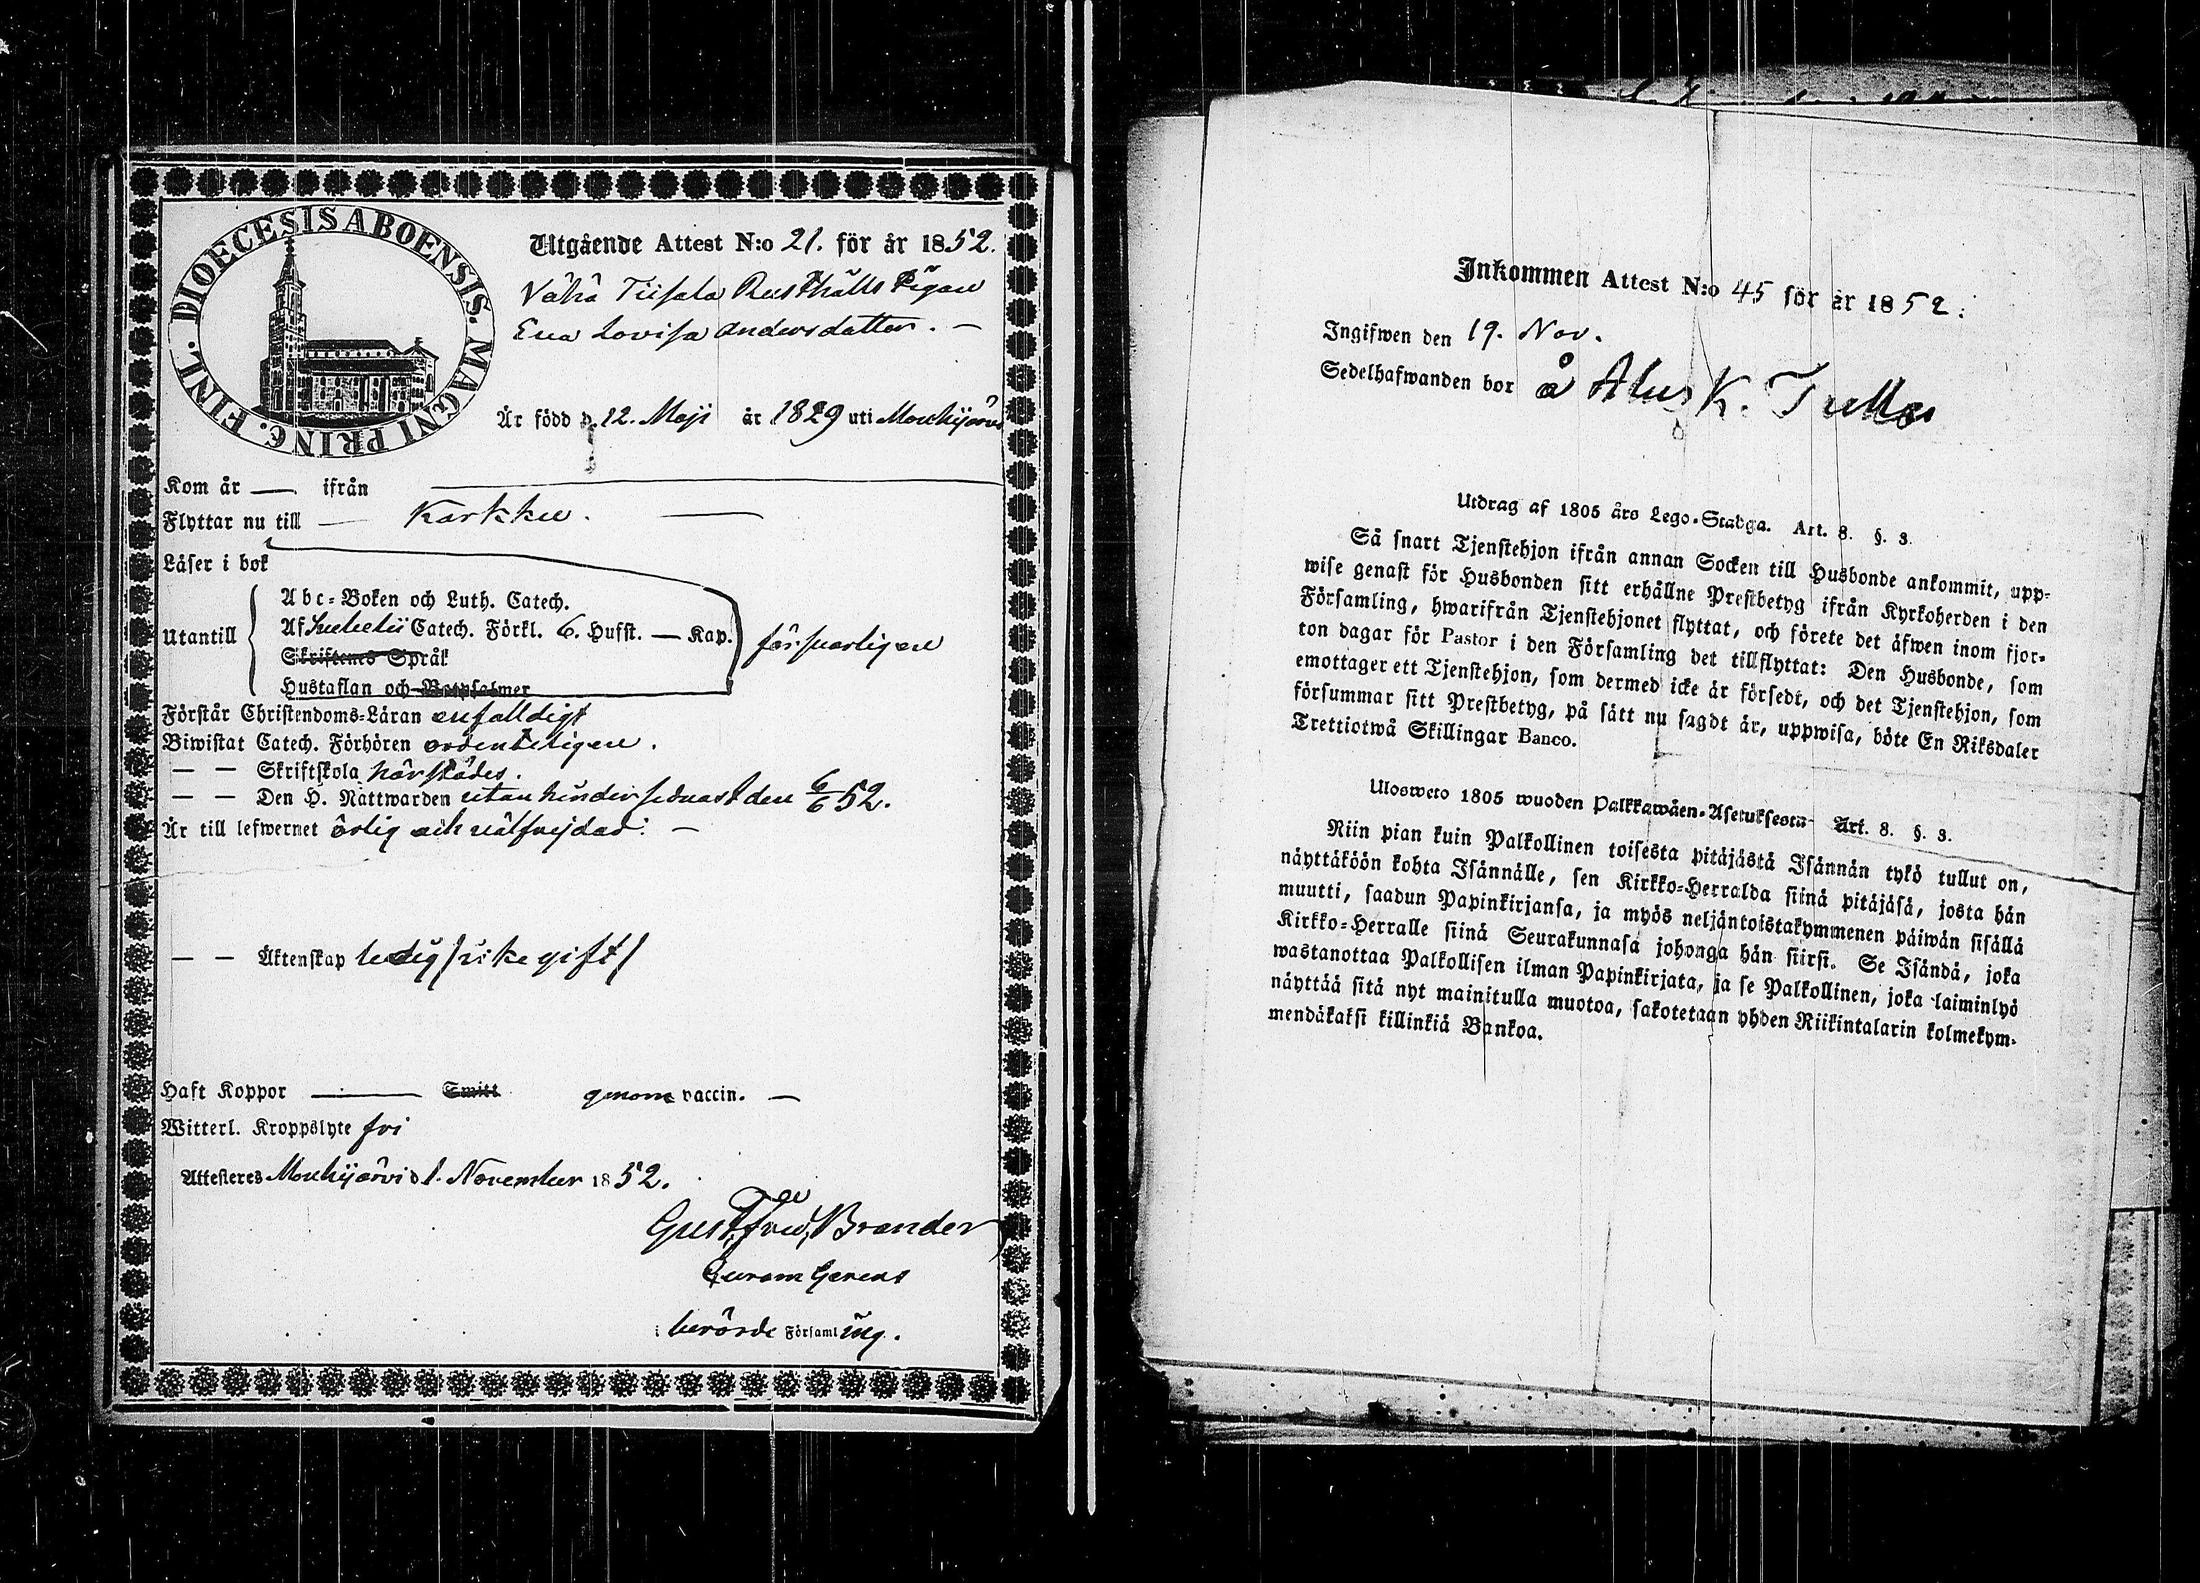 DIOECESIS ABOENSIS. MAGNI PRINC. FINL.
Utgående Attest N:o 21. för år 1852.
Vähä Tiisala Rusthålls Pigan
Eva Lovisa Andersdotter. —
Är född d. 12. Maji år 1829 uti Mouhijärvi
Kom år — ifrån
Flyttar nu till — Karkku. —
Läser i bok
Abc-Boken och Luth. Catech.
Utantill Af Svebelii Catech. Förkl. 6. Hufst. — Kap. försvarligen
Skriftenes Språk
Hustaflan och Botpsalmer
Förstår Christendoms-Läran enfaldigt
Biwistat Catech. Förhören ordenteligen.
— — Skriftskola härstädes.
— — Den H. Nattwarden utan hinder sednast den 6/6 52.
Är till lefwernet ärlig och välfrejdad. —
— — Äktenskap ledig /icke gift/
Haft Koppor — Smitt genom vaccin. —
Witterl. Kroppslyte fri
Attesteras Mouhijärvi d 1. November 1852.
Gust. Fred. Brander
Curam Gerens
i berörde Församling.
Inkommen Attest N:o 45 för år 1852.
Ingifwen den 19. Nov.
Sedelhafwanden bor å Alus K.
Utdrag af 1805 års Lego-Stadga. Art. 8. §. 3.
Så snart Tjenstehjon ifrån annan Socken till Husbonde ankommit, upp-
wise genast för Husbonden sitt erhållne Prestbetyg ifrån Kyrkoherden i den
Församling, hwarifrån Tjenstehjonet flyttat, och förete det äfwen inom fjor-
ton dagar för Pastor i den Församling det tillflyttat: Den Husbonde, som
emottager ett Tjenstehjon, som dermed icke är försedt, och det Tjenstehjon, som
försummar sitt Prestbetyg, på sätt nu sagdt är, uppwisa, böte En Riksdaler
Trettiotwå Skillingar Banco.
Ulosweto 1805 wuoden Palkkawäen-Asetuksesta Art. 8. §. 3.
Niin pian kuin Palkollinen toisesta pitäjästä Isännän tykö tullut on,
näyttäköön kohta Isännälle, sen Kirkko-Herralda siinä pitäjäsä, josta hän
muutti, saadun Papinkirjansa, ja myös neljäntoistakymmenen päiwän sisällä
Kirkko-Herralle siinä Seurakunnasa johonga hän siirsi. Se Isändä, joka
wastanottaa Palkollisen ilman Papinkirjata, ja se Palkollinen, joka laiminlyö
näyttää sitä nyt mainitulla muotoa, sakotetaan yhden Riikintalarin kolmekym-
mendäkaksi killinkiä Bankoa.